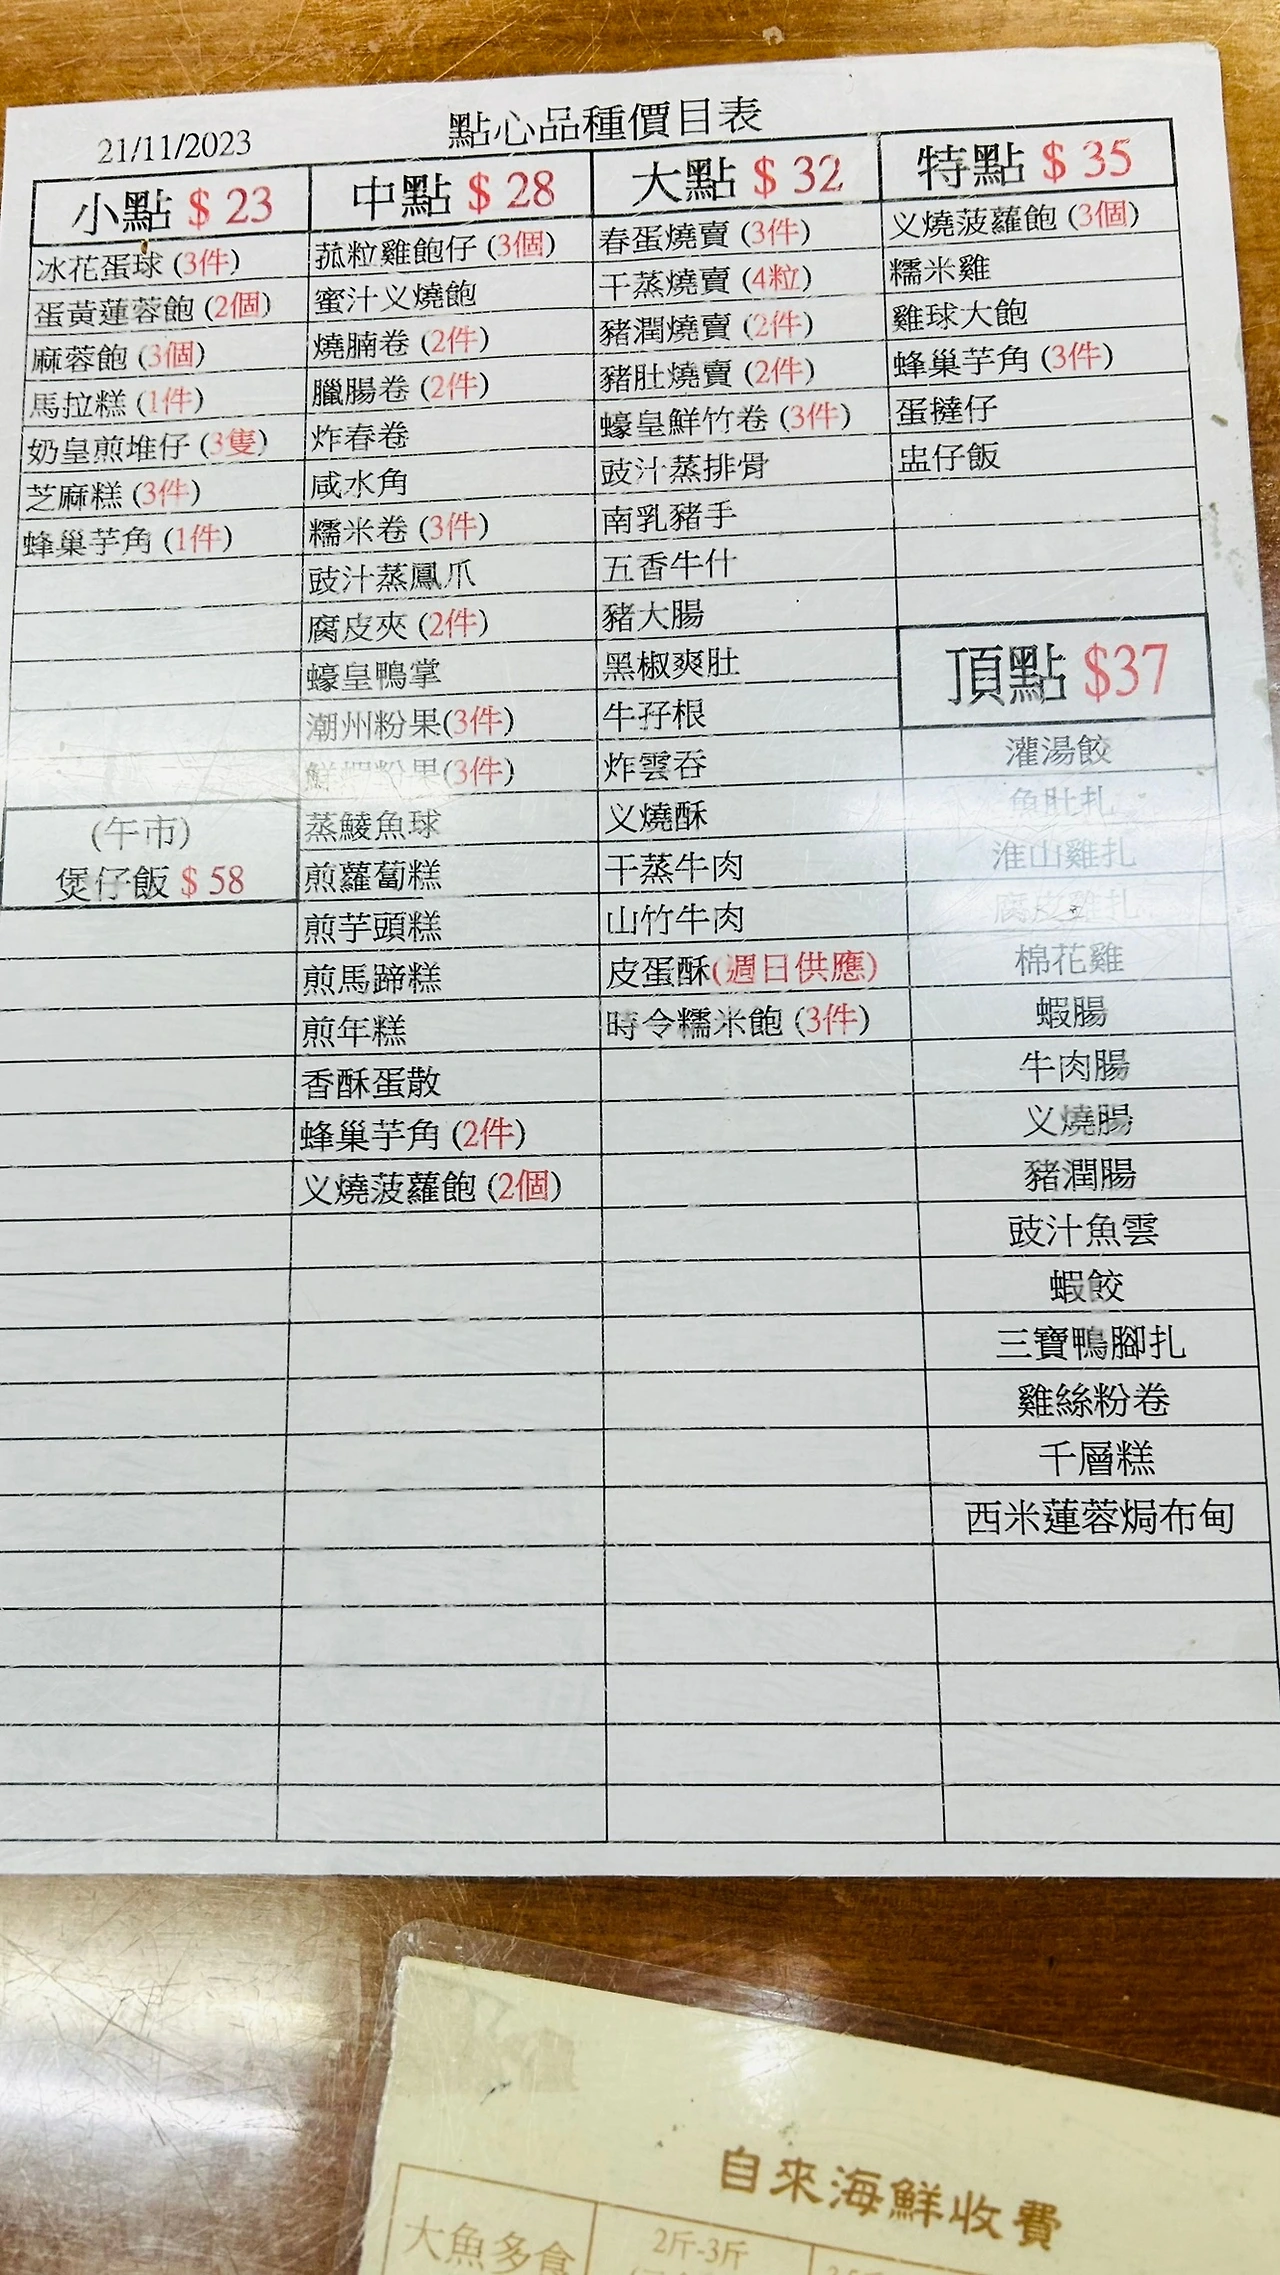 21/11/2023
點心品種價目表
小點 $ 23
冰花蛋球 (3件)
蛋黃蓮蓉飽 (2個)
麻蓉飽 (3個)
馬拉糕 (1件)
奶皇煎堆仔 (3隻)
芝麻糕 (3件)
蜂巢芋角 (1件)
(午市)
煲仔飯 $ 58
中點 $ 28
菰粒雞飽仔 (3個)
蜜汁义燒飽
燒腩卷 (2件)
臘腸卷 (2件)
炸春卷
咸水角
糯米卷 (3件)
豉汁蒸鳳爪
腐皮夾 (2件)
蠔皇鴨掌
潮州粉果(3件)
鮮蝦粉果(3件)
蒸鯪魚球
煎蘿蔔糕
煎芋頭糕
煎馬蹄糕
煎年糕
香酥蛋散
蜂巢芋角 (2件)
义燒菠蘿飽 (2個)
大點 $ 32
春蛋燒賣 (3件)
干蒸燒賣 (4粒)
豬潤燒賣 (2件)
豬肚燒賣 (2件)
蠔皇鮮竹卷 (3件)
豉汁蒸排骨
南乳豬手
五香牛什
豬大腸
黑椒爽肚
牛孖根
炸雲吞
义燒酥
干蒸牛肉
山竹牛肉
皮蛋酥(週日供應)
時令糯米飽 (3件)
特點 $ 35
义燒菠蘿飽 (3個)
糯米雞
雞球大飽
蜂巢芋角 (3件)
蛋撻仔
盅仔飯
頂點 $37
灌湯餃
魚肚扎
淮山雞扎
腐皮雞扎
棉花雞
蝦腸
牛肉腸
义燒腸
豬潤腸
豉汁魚雲
蝦餃
三寶鴨腳扎
雞絲粉卷
千層糕
西米蓮蓉焗布甸
自來海鮮收費
大魚多食
2斤-3斤